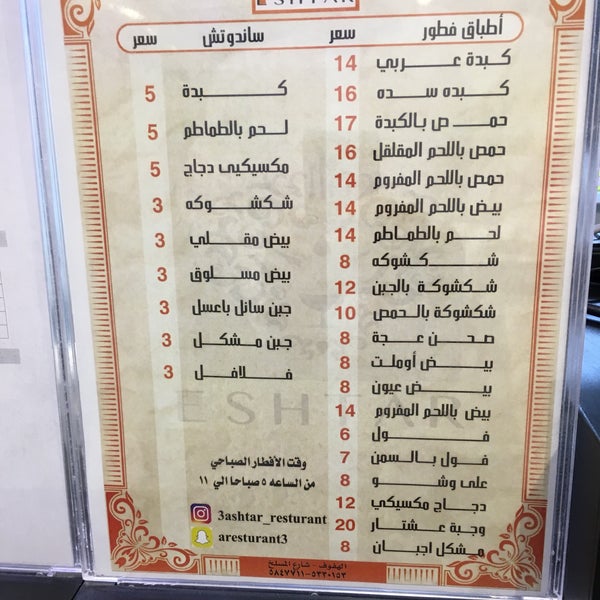 ESHTAR
أطباق فطور سعر ساندوتش سعر
كبدة عربي 14
كبده سده 16
حمص بالكبدة 17
حمص باللحم المقلقل 16
حمص باللحم المفروم 14
بيض باللحم المفروم 14
لحم بالطماطم 14
شكشوكه 8
شكشوكة بالجبن 12
شكشوكة بالحمص 10
صحن عجة 8
بيض أوملت 8
بيض عيون 8
بيض باللحم المفروم 14
فول 6
فول بالسمن 7
على وشو 8
دجاج مكسيكي 12
وجبة عشتار 20
مشكل اجبان 8
كبدة 5
لحم بالطماطم 5
مكسيكيى دجاج 5
شكشوكه 3
بيض مقلي 3
بيض مسلوق 3
جبن سائل باعسل 3
جبن مشكل 3
فلافل 3
ESHTAR
وقت الأفطار الصباحي
من الساعه ٥ صباحا الي ١١
3ashtar_resturant
aresturant3
الهفوف - شارع المسلخ
٥٨٤٧٧١١-٥٣٣٠١٥٣